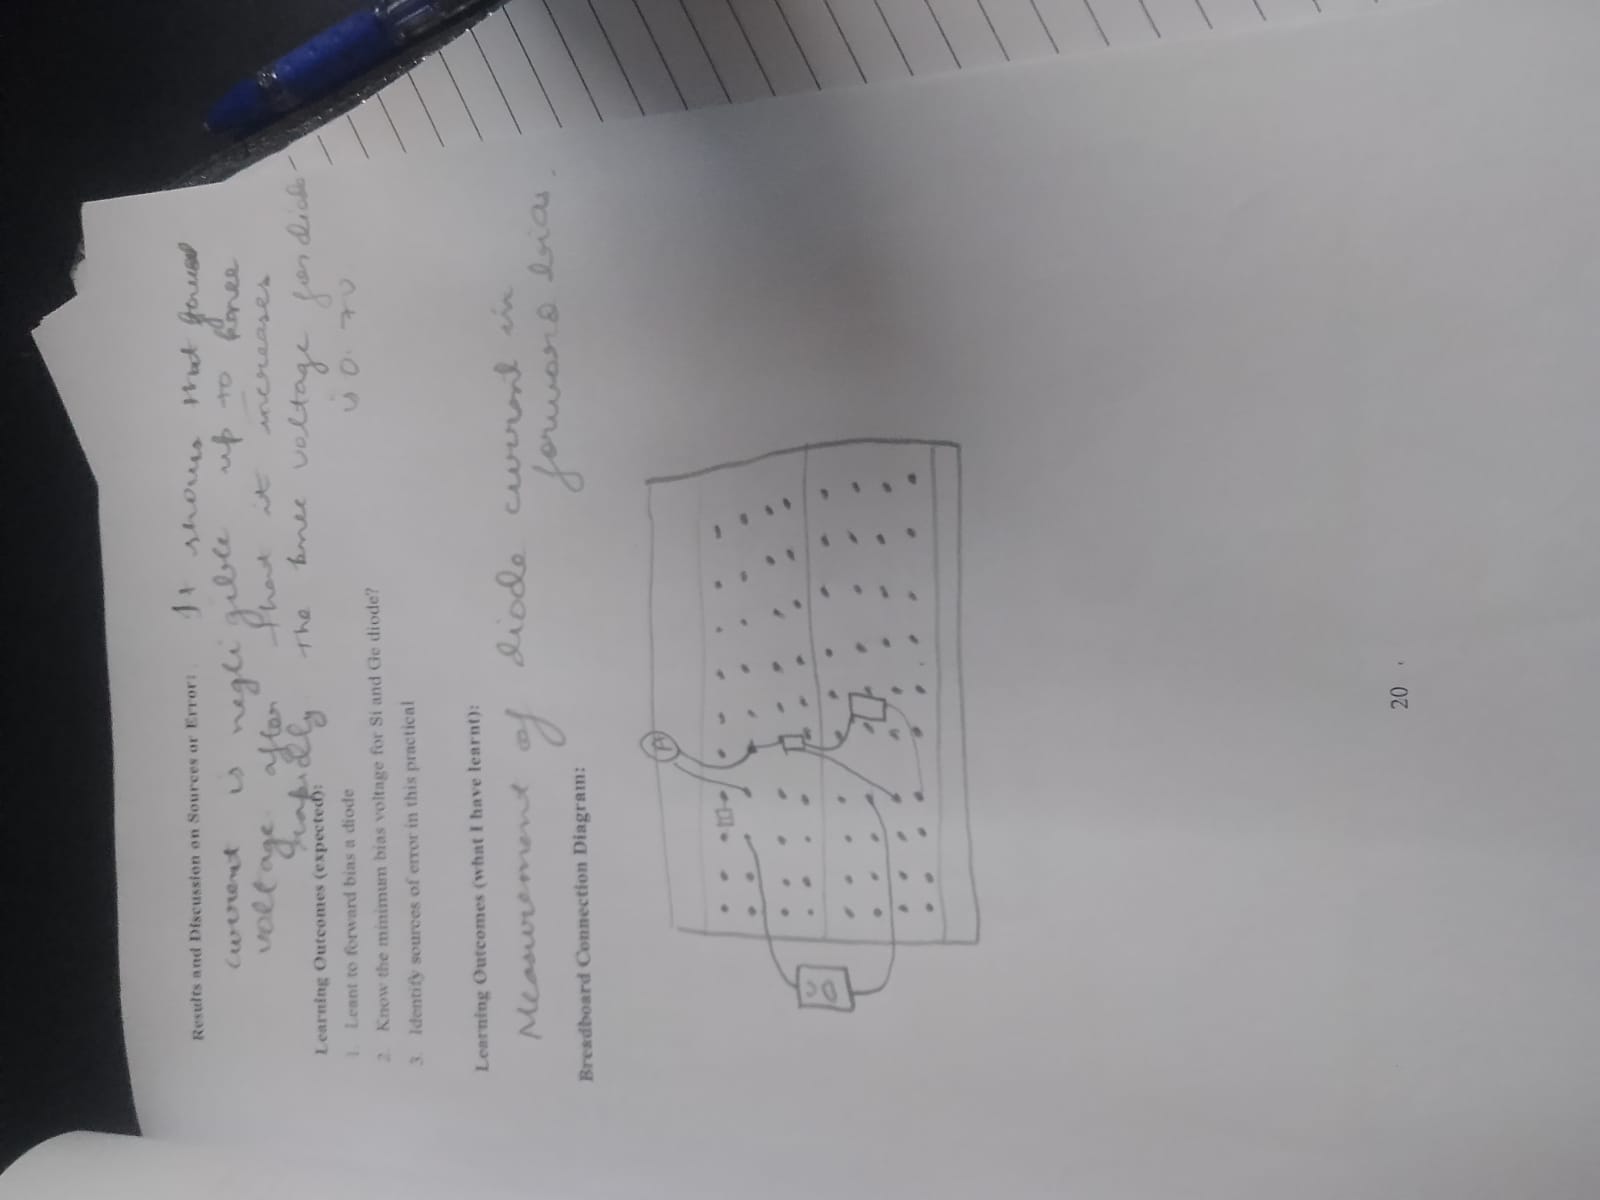 Results and Discussion on Sources or Error: It shows that forward
current is negligible up to knee
voltage after that it increases
rapidly The knee voltage for diode
is 0.7v
Learning Outcomes (expected):
1. Leant to forward bias a diode
2. Know the minimum bias voltage for Si and Ge diode?
3. Identify sources of error in this practical
Learning Outcomes (what I have learnt):
Measurement of diode current in
forward bias.
Breadboard Connection Diagram:
A
20